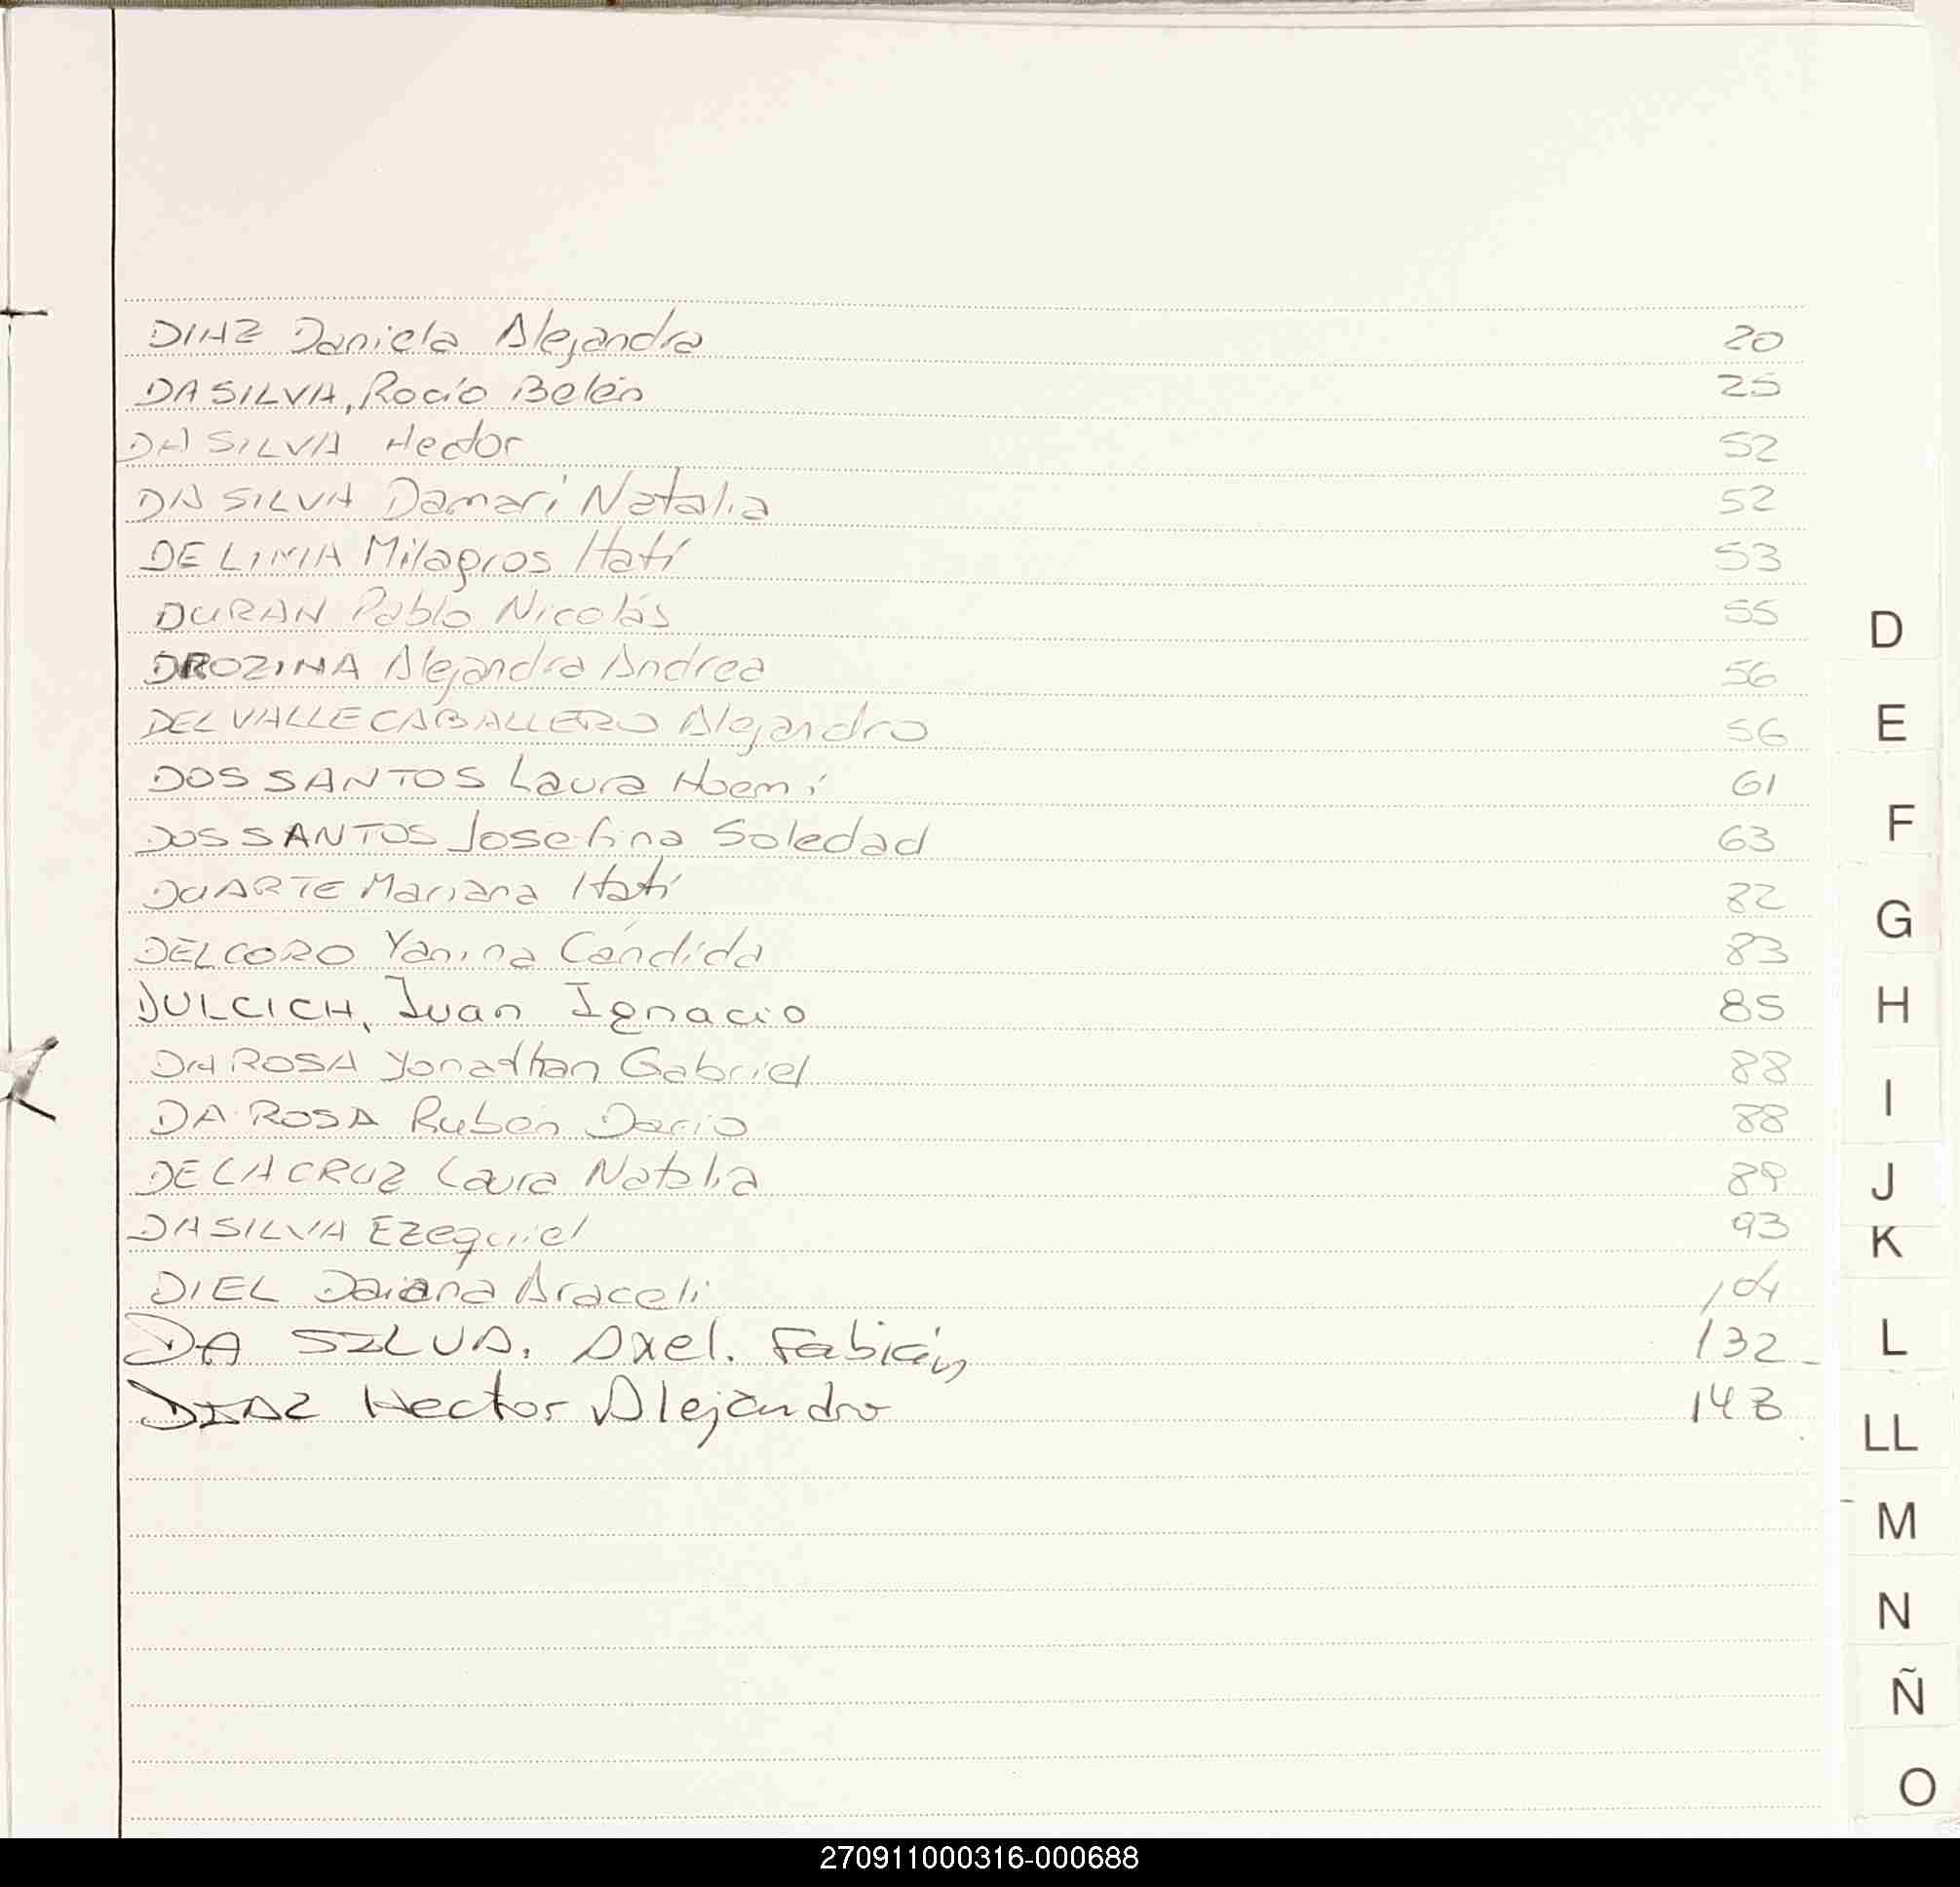 DIAZ Daniela Alejandra 20
DA SILVA, Rocío Belén 25
DA SILVA Hector 52
DA SILVA Damarí Natalia 52
DE LIMA Milagros Itatí 53
DURAN Pablo Nicolás 55
DROZINA Alejandra Andrea 56
DEL VALLE CABALLERO Alejandro 56
DOS SANTOS Laura Noemí 61
DOS SANTOS Josefina Soledad 63
DUARTE Mariana Itatí 82
DELCORO Yanina Cándida 83
DULCICH, Juan Ignacio 85
DA ROSA Yonathan Gabriel 88
DA ROSA Rubén Dario 88
DE LA CRUZ Laura Natalia 89
DA SILVA Ezequiel 93
DIEL Daiana Araceli 104
DA SILVA, Axel. Fabián 132
DIAZ Hector Alejandro 143
D
E
F
G
H
I
J
K
L
LL
M
N
Ñ
O
270911000316-000688